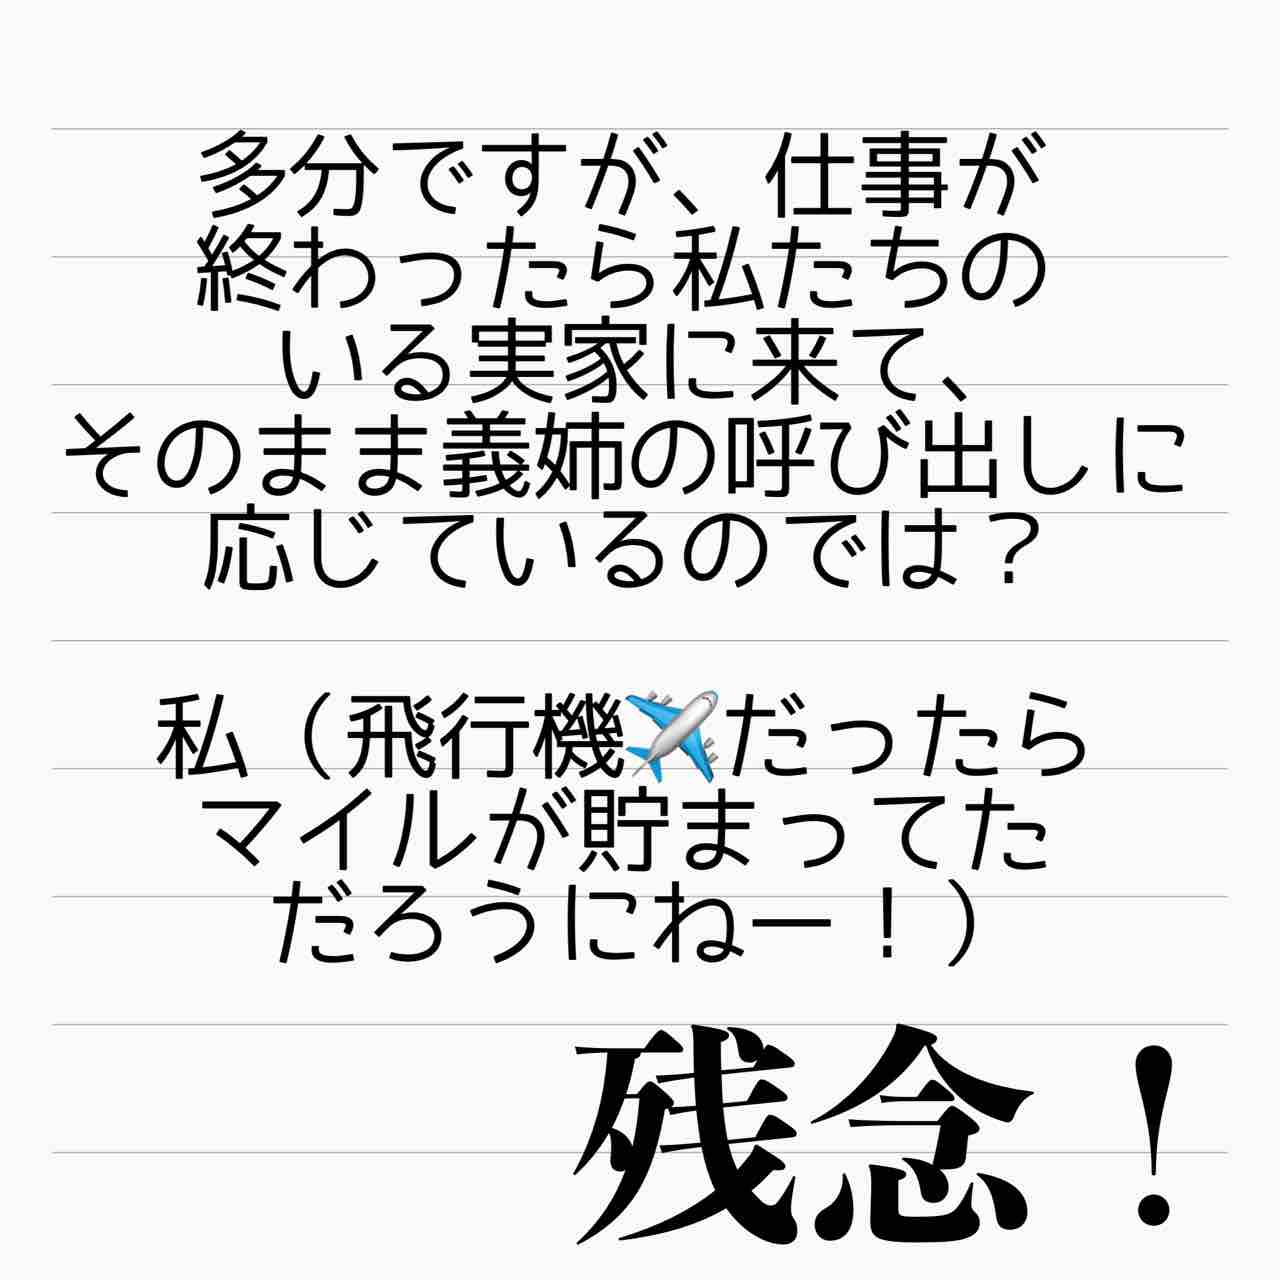 多分ですが、仕事が
終わったら私たちの
いる実家に来て、
そのまま義姉の呼び出しに
応じているのでは？
私（飛行機✈️だったら
マイルが貯まってた
だろうにねー！）
残念！